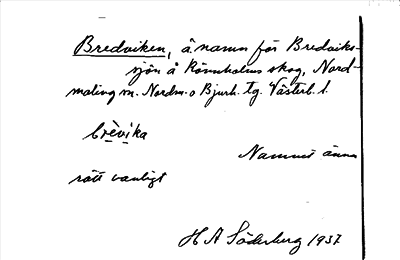 Bredviken, ä. namn för Bredviks-
sjön å Rönnholms skog, Nord-
maling sn. Nordm. o Bjurh. tg. Västerb. l.
brèvika
Namnet ännu
rätt vanligt
H A Söderberg 1937